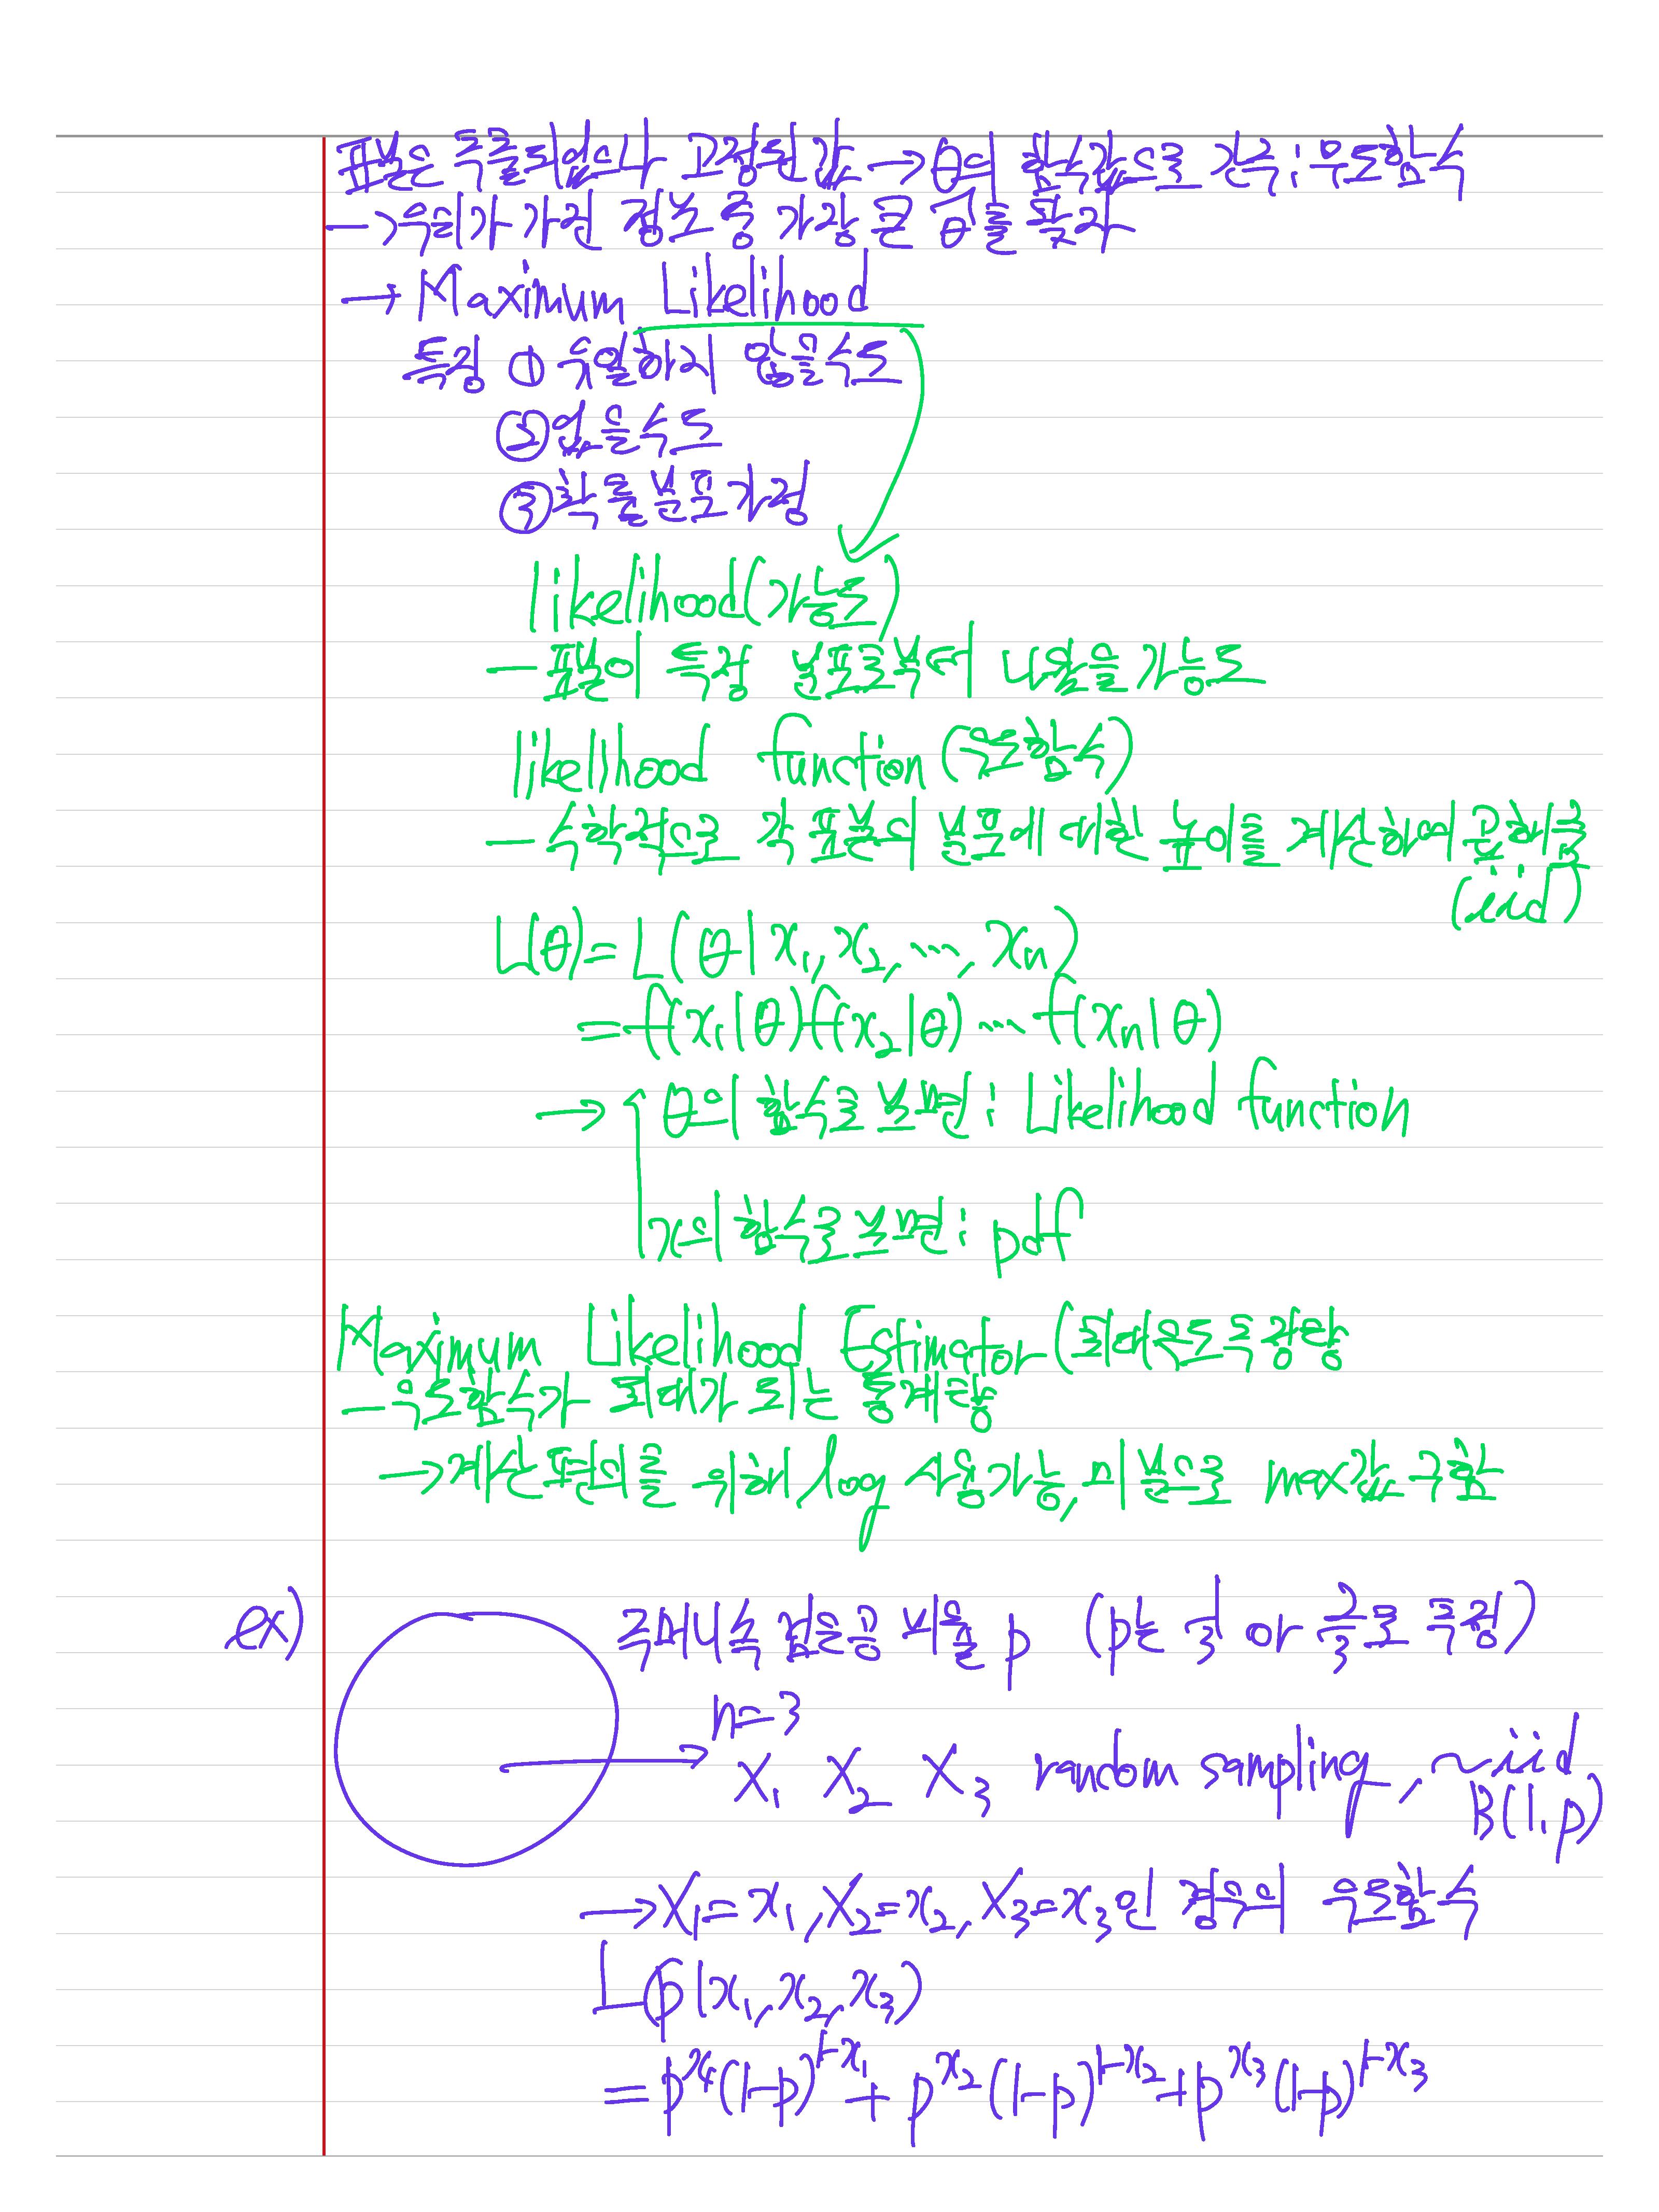 표본은 추출되었으나 고정된 값 → θ의 함숫값으로 간주 : 우도함수
→ 우리가 가진 정보 중 가장 큰 값을 갖자
→ Maximum Likelihood
특징 ① 유일하지 않을수도
② 없을수도
③ 확률분포가정
likelihood(가능도)
- 표본이 특정 분포로부터 나왔을 가능도
likelihood function (우도함수)
- 수학적으로 각 표본의 분포에 대한 높이를 계산하여 곱해줌
(iid)
L(θ) = L(θ|x₁, x₂, ..., xₙ)
= f(x₁|θ)f(x₂|θ) ... f(xₙ|θ)
→ θ의 함수로 보면 : Likelihood function
x의 함수로 보면 : pdf
Maximum Likelihood Estimator (최대우도추정량
- 우도함수가 최대가 되는 통계량
→ 계산편의를 위해 log 사용가능, 미분으로 max값 구함
ex) 주머니속 검은공 비율 p (p는 1/3 or 2/3로 추정)
n=3
X₁ X₂ X₃ random sampling, ~iid
B(1, p)
→ X₁=x₁, X₂=x₂, X₃=x₃인 경우의 우도함수
L(p|x₁, x₂, x₃)
= p^x₁(1-p)^1-x₁ + p^x₂(1-p)^1-x₂ + p^x₃(1-p)^1-x₃